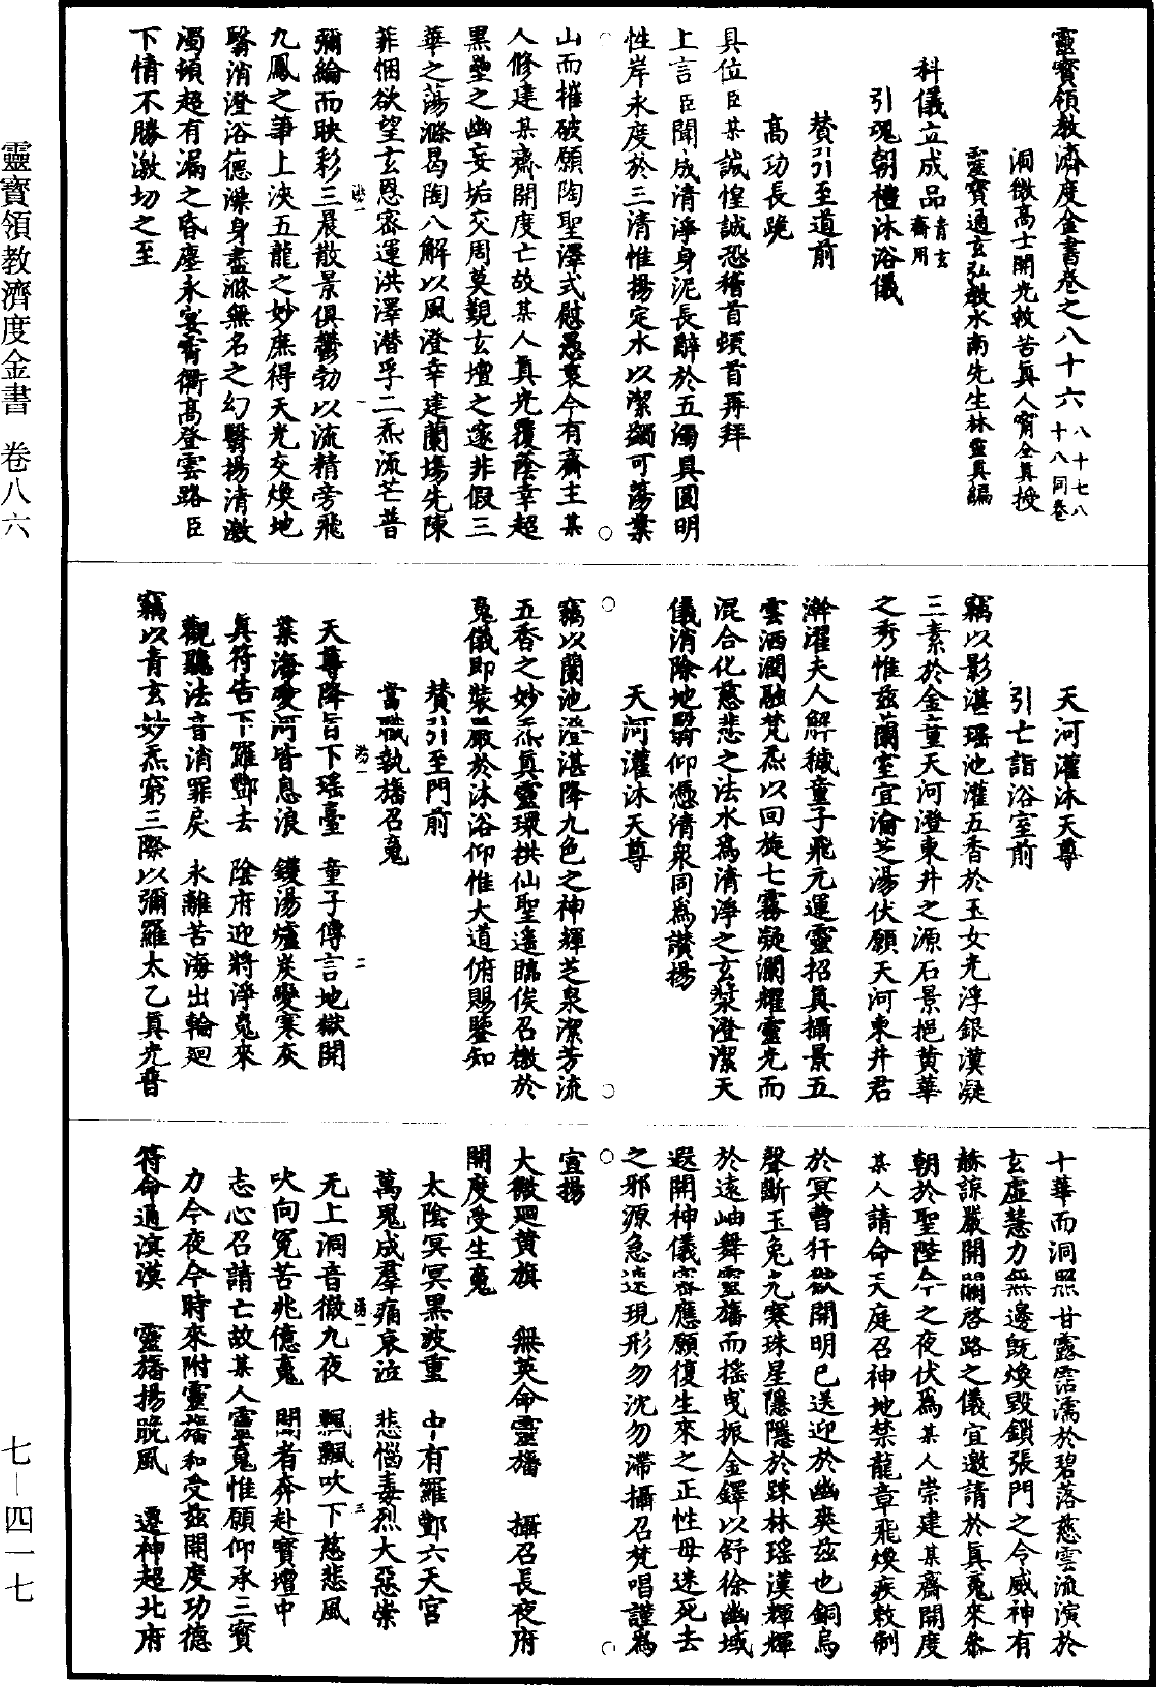 靈寶領教濟度金書卷之八十六 八十七八十八同卷
洞微高士開光救苦真人甯全真授
靈寶通玄弘教水南先生林靈真編
科儀立成品 青玄齋用
引魂朝禮沐浴儀
贊引至道前
高功長跪
具位臣某誠惶誠恐稽首頓首再拜
上言臣聞成清淨身泥長辭於五濁具圓明
性岸永度於三清惟揚定水以潔蠲可蕩業
山而摧破願陶聖澤式慰愚衷今有齋主某
人修建某齋開度亡故某人真光覆蔭幸超
黑壘之幽妄垢交周莫覲玄壇之邃非假三
華之蕩滌曷陶八解以風澄幸建蘭場先陳
菲悃欲望玄恩密運洪澤潛孚二炁流芒普
彌綸而映彩三晨散景俱鬱勃以流精旁飛
九鳳之華上浹五龍之妙庶得天光交煥地
翳消澄浴德澡身盡滌無名之幻翳揚清激
濁頓超有漏之昏塵永宴霄衢高登雲路臣
下情不勝激切之至
天河灌沐天尊
引亡詣浴室前
竊以影湛瑤池灌五香於玉女光浮銀漢凝
三素於金童天河澄東井之源石景挹黃華
之秀惟茲蘭室宜瀹芝湯伏願天河東井君
澣濯夫人解穢童子飛元運靈招真攝景五
雲洒潤融梵炁以回旋七霧凝瀾耀靈光而
混合化慈悲之法水為清淨之玄漿澄潔天
儀消除地翳仰憑清衆同為讚揚
天河灌沐天尊
竊以蘭池澄湛降九色之神輝芝泉潔芳流
五香之妙炁真靈環拱仙聖遙臨俟召檄於
䰟儀即裝嚴於沐浴仰惟大道俯賜鑒知
贊引至門前
當職執旛召䰟
天尊降旨下瑤臺 童子傳言地獄開
業海愛河皆息浪 鑊湯爐炭變寒灰
真符告下羅酆去 陰府迎將淨䰟來
觀聽法音消罪戾 永離苦海出輪廻
竊以青玄妙炁窮三際以彌羅太乙真光普
十華而洞照甘露霑濡於碧落慈雲流演於
玄虛慧力無邊既煥毀鎖張門之令威神有
赫諒嚴開關啓路之儀宜邀請於真䰟來叅
朝於聖陛今之夜伏為某人崇建某齋開度
某人請命天庭召神地禁龍章飛煥疾敕制
於冥曹犴獄開明已送迎於幽爽茲也銅烏
聲斷玉兔光寒珠星隱隱於踈林瑤漢輝輝
於遠岫舞靈旛而搖曳振金鐸以舒徐幽域
遐開神儀密應願復生來之正性毋迷死去
之邪源急速現形勿沈勿滯攝召梵唱謹為
宣揚
大微廻黃旗 無英命靈旛 攝召長夜府
開度受生䰟
太陰冥冥黑波重 中有羅酆六天宮
萬鬼成羣痛哀泣 悲惱毒烈大惡崇
无上洞音徹九夜 飄飄吹下慈悲風
吹向冤苦兆億䰟 聞者奔赴寶壇中
志心召請亡故某人靈䰟惟願仰承三寶
力今夜今時來附靈旛和受茲開度功德
符命通溟漠 靈旛揚晩風 遷神超北府
靈寶領教濟度金書 卷八六
七—四一七